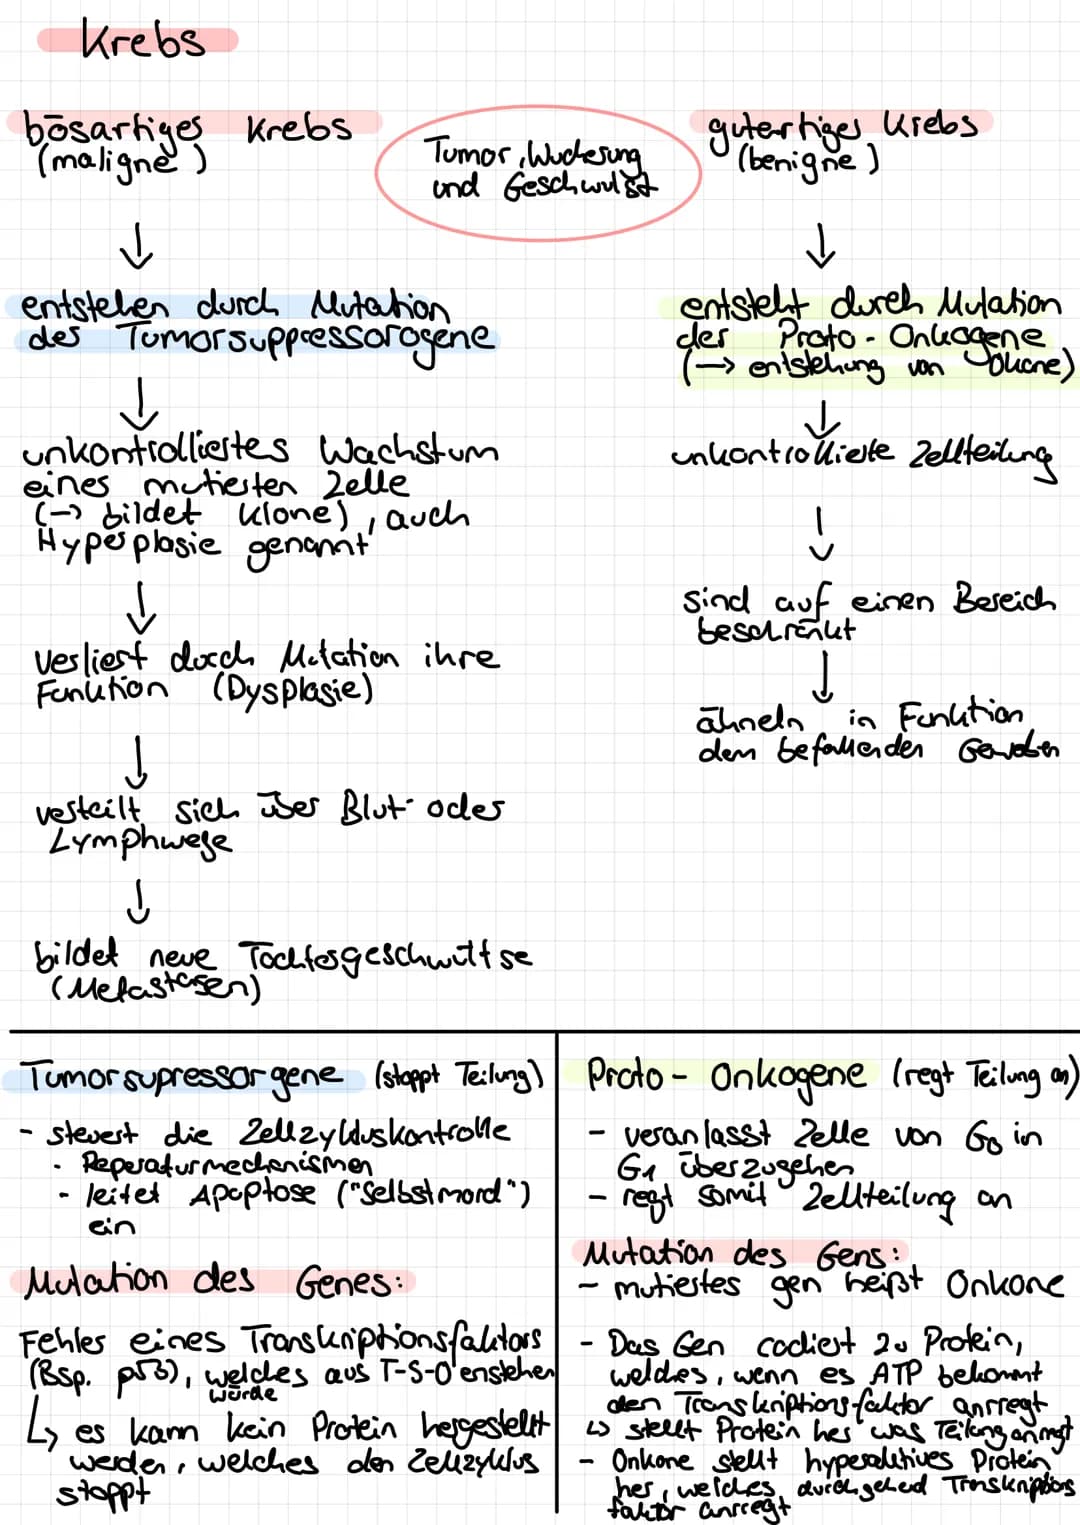 Krebs
bösartiges Krebs
(maligne)
Tumor, Wucherung
und Geschwulst
gutertiges Krebs
(benigne)
↓
entstehen durch Mutation
des Tumorsuppressorogene
↓
unkontrolliertes Wachstum
eines mutierten Zelle
(→ bildet Klone), auch
Hyperplasie genannt
↓
verliert durch Mutation ihre
Funktion (Dysplasie)
↓
verteilt sich über Blut- oder
Lymphwege
↓
bildet neue Tochtergeschwültse
(Metastasen)
↓
entsteht durch Mutation
der Proto-Onkogene
(→ entstehung von Okone)
↓
unkontrollierte Zellteilung
↓
sind auf einen Bereich
beschränkt
↓
ähneln in Funktion
dem befallenden Geweben
Tumorsupressorgene (stoppt Teilung)
- steuert die Zellzykluskontrolle
- Reperaturmechanismen
- leitet Apoptose ("Selbstmord")
ein
Mutation des Genes:
Fehler eines Transkriptionsfaktors
(Bsp. p53), welches aus T-S-O enstehen
würde
↳ es kann kein Protein hergestellt
werden, welches den Zellzyklus
stoppt
Proto-Onkogene (regt Teilung an)
- veranlasst Zelle von G0 in
G1 überzugehen
- regt somit Zellteilung an
Mutation des Gens:
- mutiertes gen heißt Onkone
- Das Gen codiert zu Protein,
welches, wenn es ATP bekommt
den Transkriptionsfaktor anrregt
↳ stellt Protein her was Teilung anregt
- Onkone stellt hyperaktives Protein
her, welches durchgehend Transkriptions
faktor anrregt